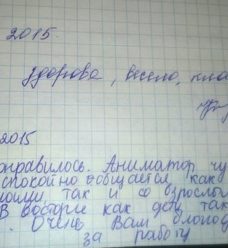 2015.
здорово, весело, кла
2015
онравилось. Аниматор чу
спокойно общается как
так и со взрослы
В восторге как дети так
Очень Вам благод
за работу